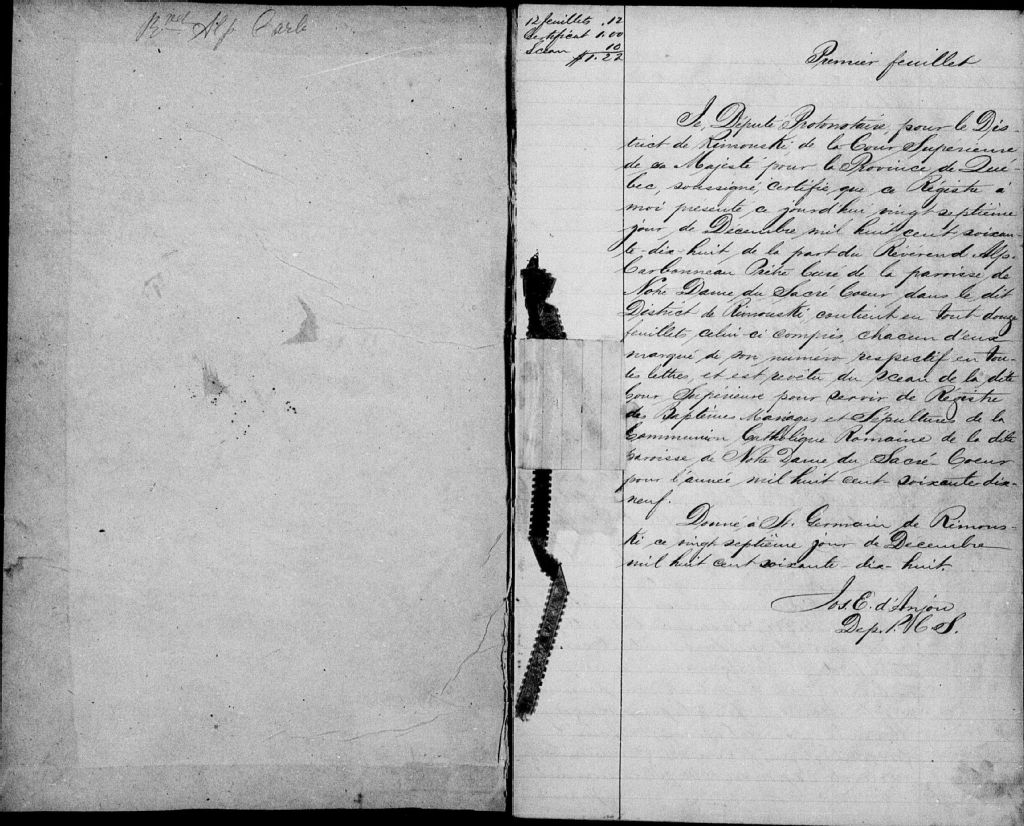 Alp Carb
12 feuillets .12
Certificat 1.00
Sceau 10
$1.22
Premier feuillet
Je, Député Protonotaire, pour le Dis-
trict de Rimouski de la Cour Supérieure
de sa Majesté pour la Province de Qué-
bec, soussigné, certifie, que ce Régistre à
moi présenté ce jourd'hui vingt septième
jour de Décembre mil huit cent soixan-
te-dix-huit de la part du Révérend Alp.
Carbonneau Prêtre Curé de la paroisse de
Notre Dame du Sacré Coeur, dans le dit
District de Rimouski, contient en tout douze
feuillets celui-ci compris, chacun d'eux
marqué de son numéro respectif en tou-
tes lettres, et est revêtu du sceau de la dite
Cour Supérieure pour servir de Régistre
des Baptêmes Mariages et Sépultures de la
Communion Catholique Romaine de la dite
paroisse de Notre Dame du Sacré-Coeur
pour l'année mil huit cent soixante dix-
neuf.
Donné à St. Germain de Rimous-
ki ce vingt septième jour de Décembre
mil huit cent soixante-dix-huit.
Jos. E. d'Anjou
Dep. P. C S.